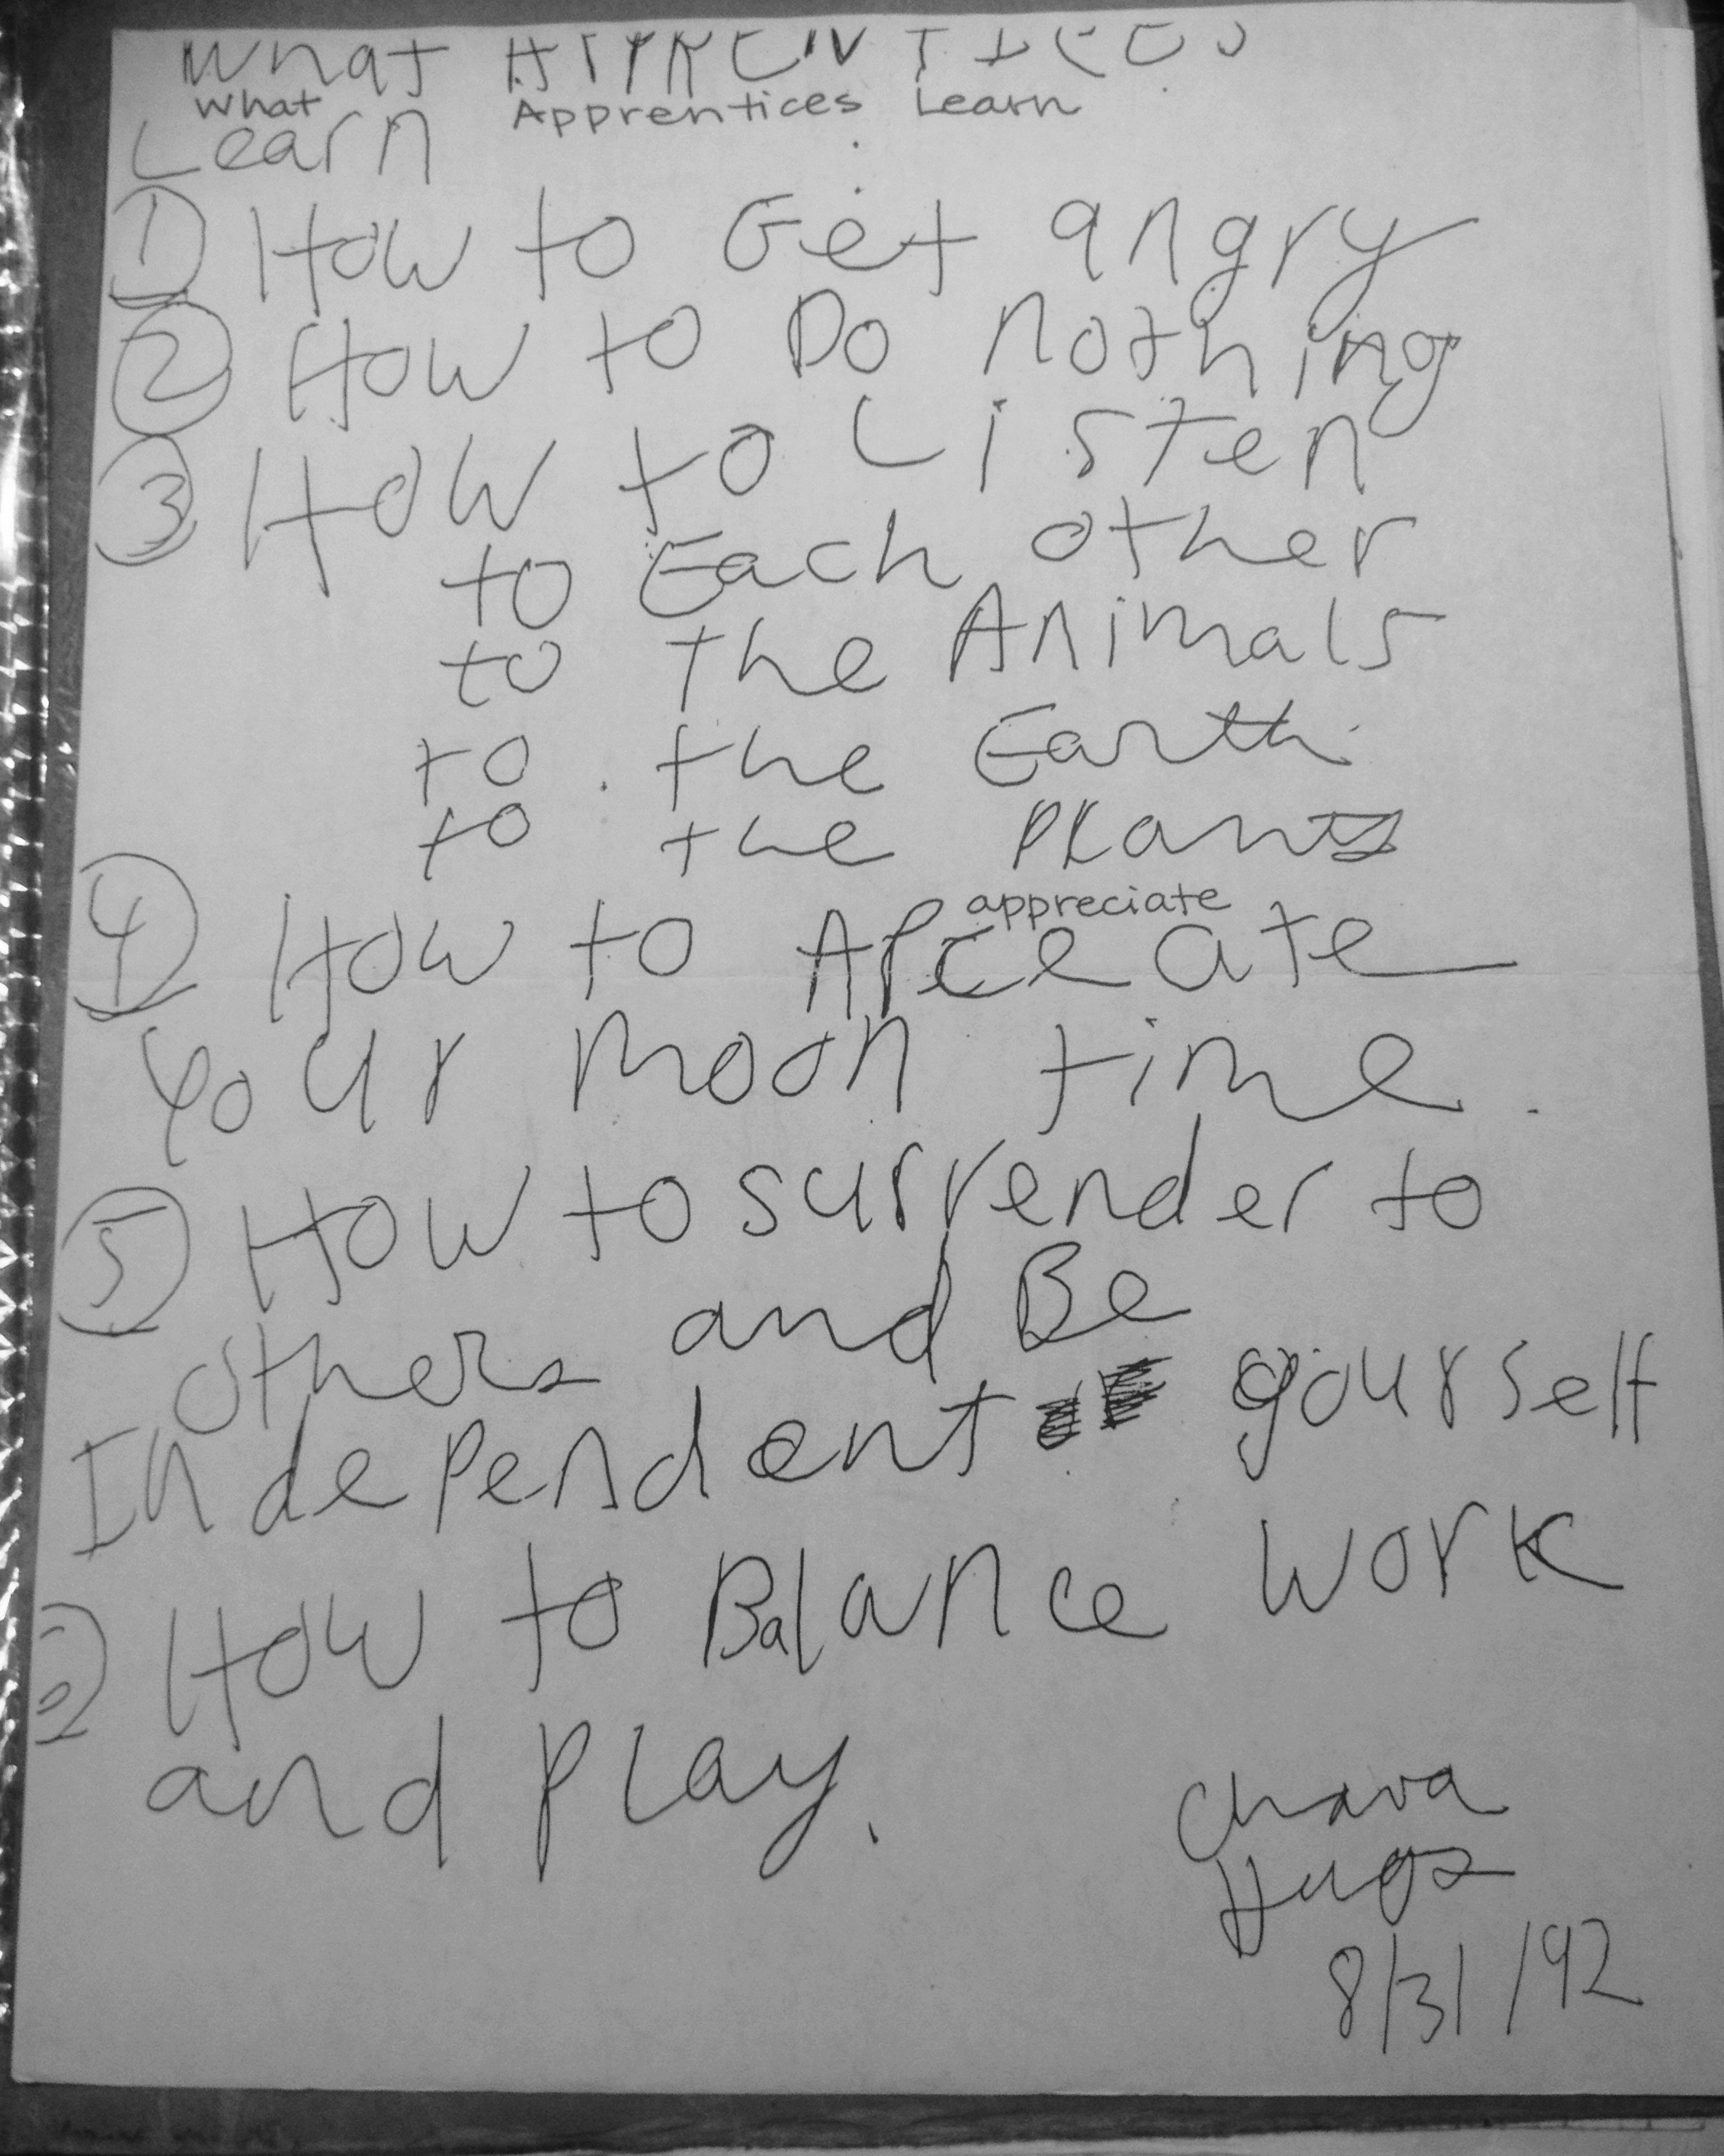 What APPRENTICES
What Apprentices Learn
Learn
① How to Get angry
② How to Do nothing
③ How to Listen
to Each other
to the Animals
to the Earth
to the Plants
appreciate
④ How to APCeate
Your moon time.
⑤ How to surrender to
others and Be
Independent yourself
How to Balance work
and play.
Chava
8/31/92